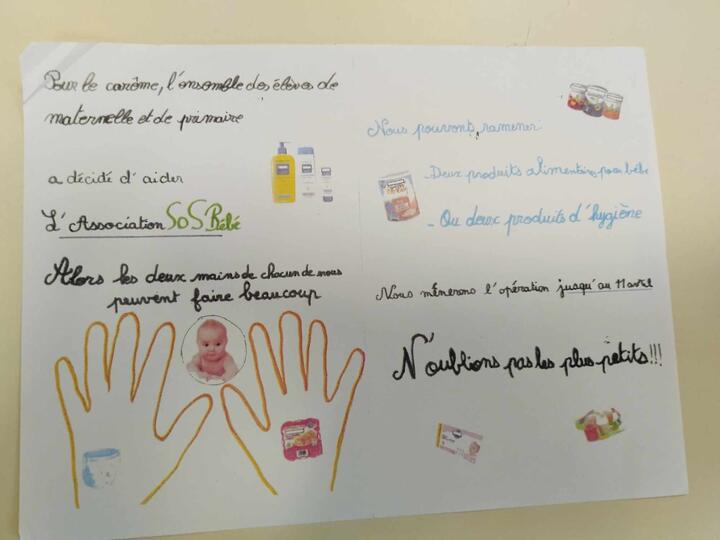 Pour le carême, l'ensemble des élèves de
maternelle et de primaire
a décidé d'aider
L'Association SoS Bébé
Alors les deux mains de chacun de nous
peuvent faire beaucoup
Nous pourront ramener:
- Deux produits alimentaires pour bébé
- Ou deux produits d'hygiène
Nous mènerons l'opération jusqu'au 11 avril
N'oublions pas les plus petits!!!